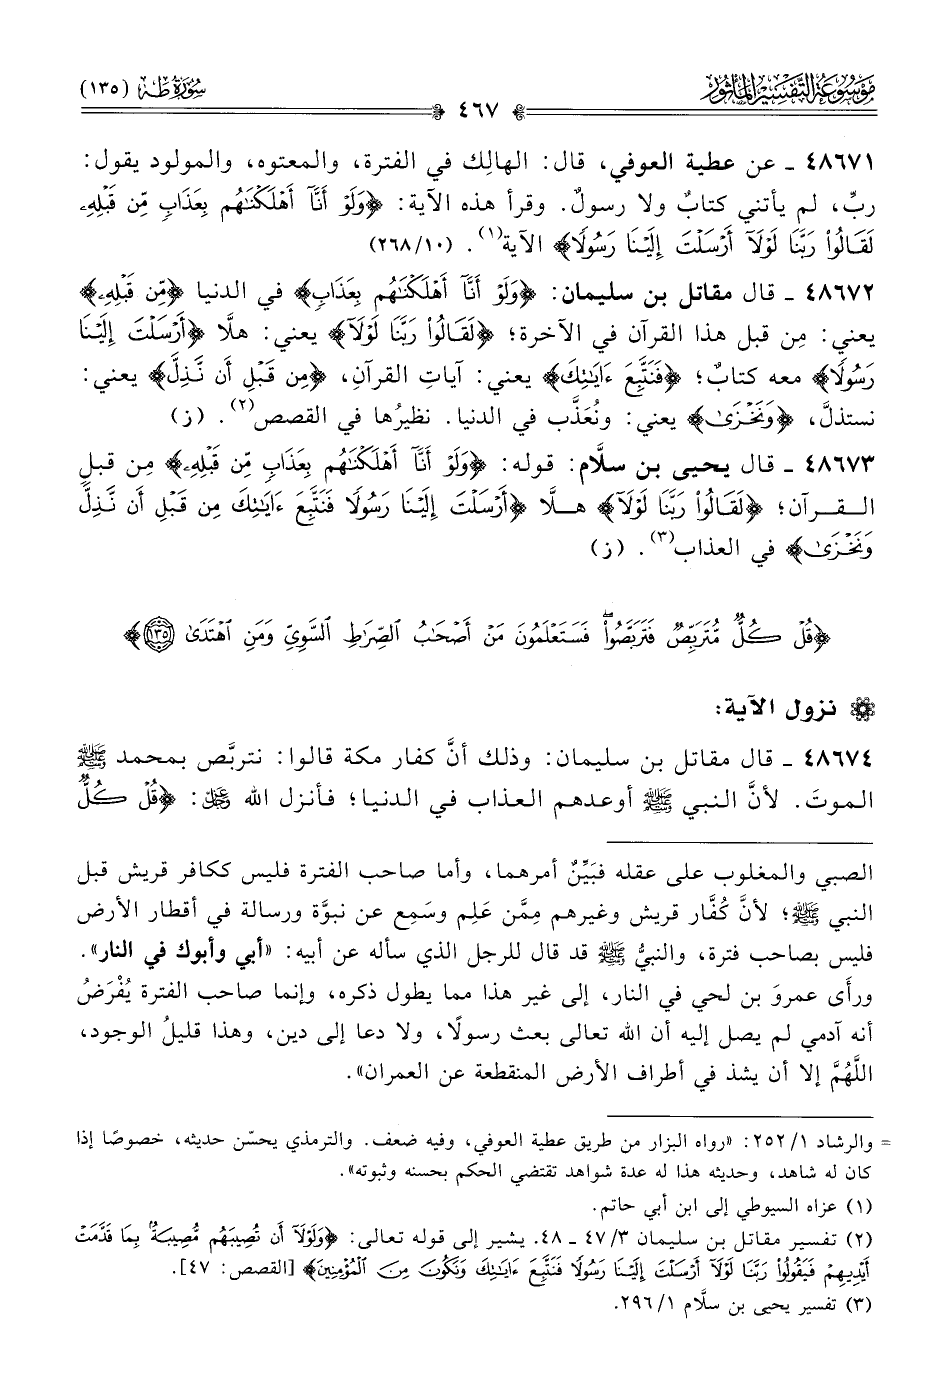 مَوْسُوعَة التَّفْسِير المَأثُور
سُورَة طه (١٣٥)
٤٦٧
٤٨٦٧١ ـ عن عطية العوفي، قال: الهالِك في الفترة، والمعتوه، والمولود يقول:
ربِّ، لم يأتني كتابٌ ولا رسولٌ. وقرأ هذه الآية: ﴿وَلَوْ أَنَّآ أَهْلَكْنَٰهُم بِعَذَابٍ مِّن قَبْلِهِۦ
لَقَالُوا۟ رَبَّنَا لَوْلَآ أَرْسَلْتَ إِلَيْنَا رَسُولًا﴾ الآية(١). (٢٦٨/١٠)
٤٨٦٧٢ ـ قال مقاتل بن سليمان: ﴿وَلَوْ أَنَّآ أَهْلَكْنَٰهُم بِعَذَابٍ﴾ في الدنيا ﴿مِّن قَبْلِهِۦ﴾
يعني: مِن قبل هذا القرآن في الآخرة؛ ﴿لَقَالُوا۟ رَبَّنَا لَوْلَآ﴾ يعني: هلَّا ﴿أَرْسَلْتَ إِلَيْنَا
رَسُولًا﴾ معه كتابٌ؛ ﴿فَنَتَّبِعَ ءَايَٰتِكَ﴾ يعني: آياتِ القرآنِ، ﴿مِن قَبْلِ أَن نَّذِلَّ﴾ يعني:
نستذلَّ، ﴿وَنَخْزَىٰ﴾ يعني: ونُعَذَّب في الدنيا. نظيرُها في القصص(٢). (ز)
٤٨٦٧٣ ـ قال يحيى بن سلَّام: قوله: ﴿وَلَوْ أَنَّآ أَهْلَكْنَٰهُم بِعَذَابٍ مِّن قَبْلِهِۦ﴾ مِن قبلِ
القـرآن؛ ﴿لَقَالُوا۟ رَبَّنَا لَوْلَآ﴾ هـلَّا ﴿أَرْسَلْتَ إِلَيْنَا رَسُولًا فَنَتَّبِعَ ءَايَٰتِكَ مِن قَبْلِ أَن نَّذِلَّ
وَنَخْزَىٰ﴾ في العذاب(٣). (ز)
﴿قُلْ كُلٌّ مُّتَرَبِّصٌ فَتَرَبَّصُوا۟ۖ فَسَتَعْلَمُونَ مَنْ أَصْحَٰبُ ٱلصِّرَٰطِ ٱلسَّوِيِّ وَمَنِ ٱهْتَدَىٰ ١٣٥﴾
نزول الآية:
٤٨٦٧٤ ـ قال مقاتل بن سليمان: وذلك أنَّ كفار مكة قالوا: نتربَّص بمحمد ﷺ
الموتَ. لأنَّ النبي ﷺ أوعدهم العذاب في الدنيا؛ فأنزل الله عز وجل: ﴿قُلْ كُلٌّ
الصبي والمغلوب على عقله فبَيِّنٌ أمرهما، وأما صاحب الفترة فليس ككافر قريش قبل
النبي ﷺ؛ لأنَّ كُفَّار قريش وغيرهم مِمَّن عَلِم وسَمِع عن نبوَّة ورسالة في أقطار الأرض
فليس بصاحب فترة، والنبيُّ ﷺ قد قال للرجل الذي سأله عن أبيه: «أبي وأبوك في النار».
ورأى عمروَ بن لحي في النار، إلى غير هذا مما يطول ذكره، وإنما صاحب الفترة يُفْرَضُ
أنه آدمي لم يصل إليه أن الله تعالى بعث رسولًا، ولا دعا إلى دين، وهذا قليلُ الوجود،
اللَّهُمَّ إلا أن يشذ في أطراف الأرض المنقطعة عن العمران».
= والرشاد ٢٥٢/١: «رواه البزار من طريق عطية العوفي، وفيه ضعف. والترمذي يحسّن حديثه، خصوصًا إذا
كان له شاهد، وحديثه هذا له عدة شواهد تقتضي الحكم بحسنه وثبوته».
(١) عزاه السيوطي إلى ابن أبي حاتم.
(٢) تفسير مقاتل بن سليمان ٤٧/٣ ـ ٤٨. يشير إلى قوله تعالى: ﴿وَلَوْلَآ أَن تُصِيبَهُم مُّصِيبَةٌۢ بِمَا قَدَّمَتْ
أَيْدِيهِمْ فَيَقُولُوا۟ رَبَّنَا لَوْلَآ أَرْسَلْتَ إِلَيْنَا رَسُولًا فَنَتَّبِعَ ءَايَٰتِكَ وَنَكُونَ مِنَ ٱلْمُؤْمِنِينَ﴾ [القصص: ٤٧].
(٣) تفسير يحيى بن سلَّام ٢٩٦/١.